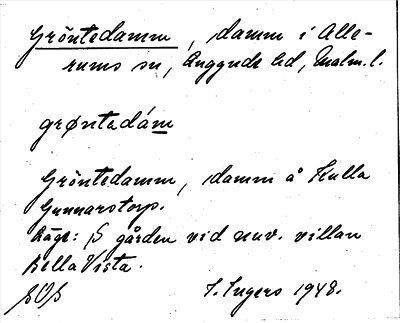 Gröntedamm, damm i Alle-
rums sn, Luggude hd, Malm. l.
grøntadám
Gröntedamm, damm å Kulla
Gunnarstorp.
Läge: S gården vid nuv. villan
Bella Vista.
I. Ingers 1948.